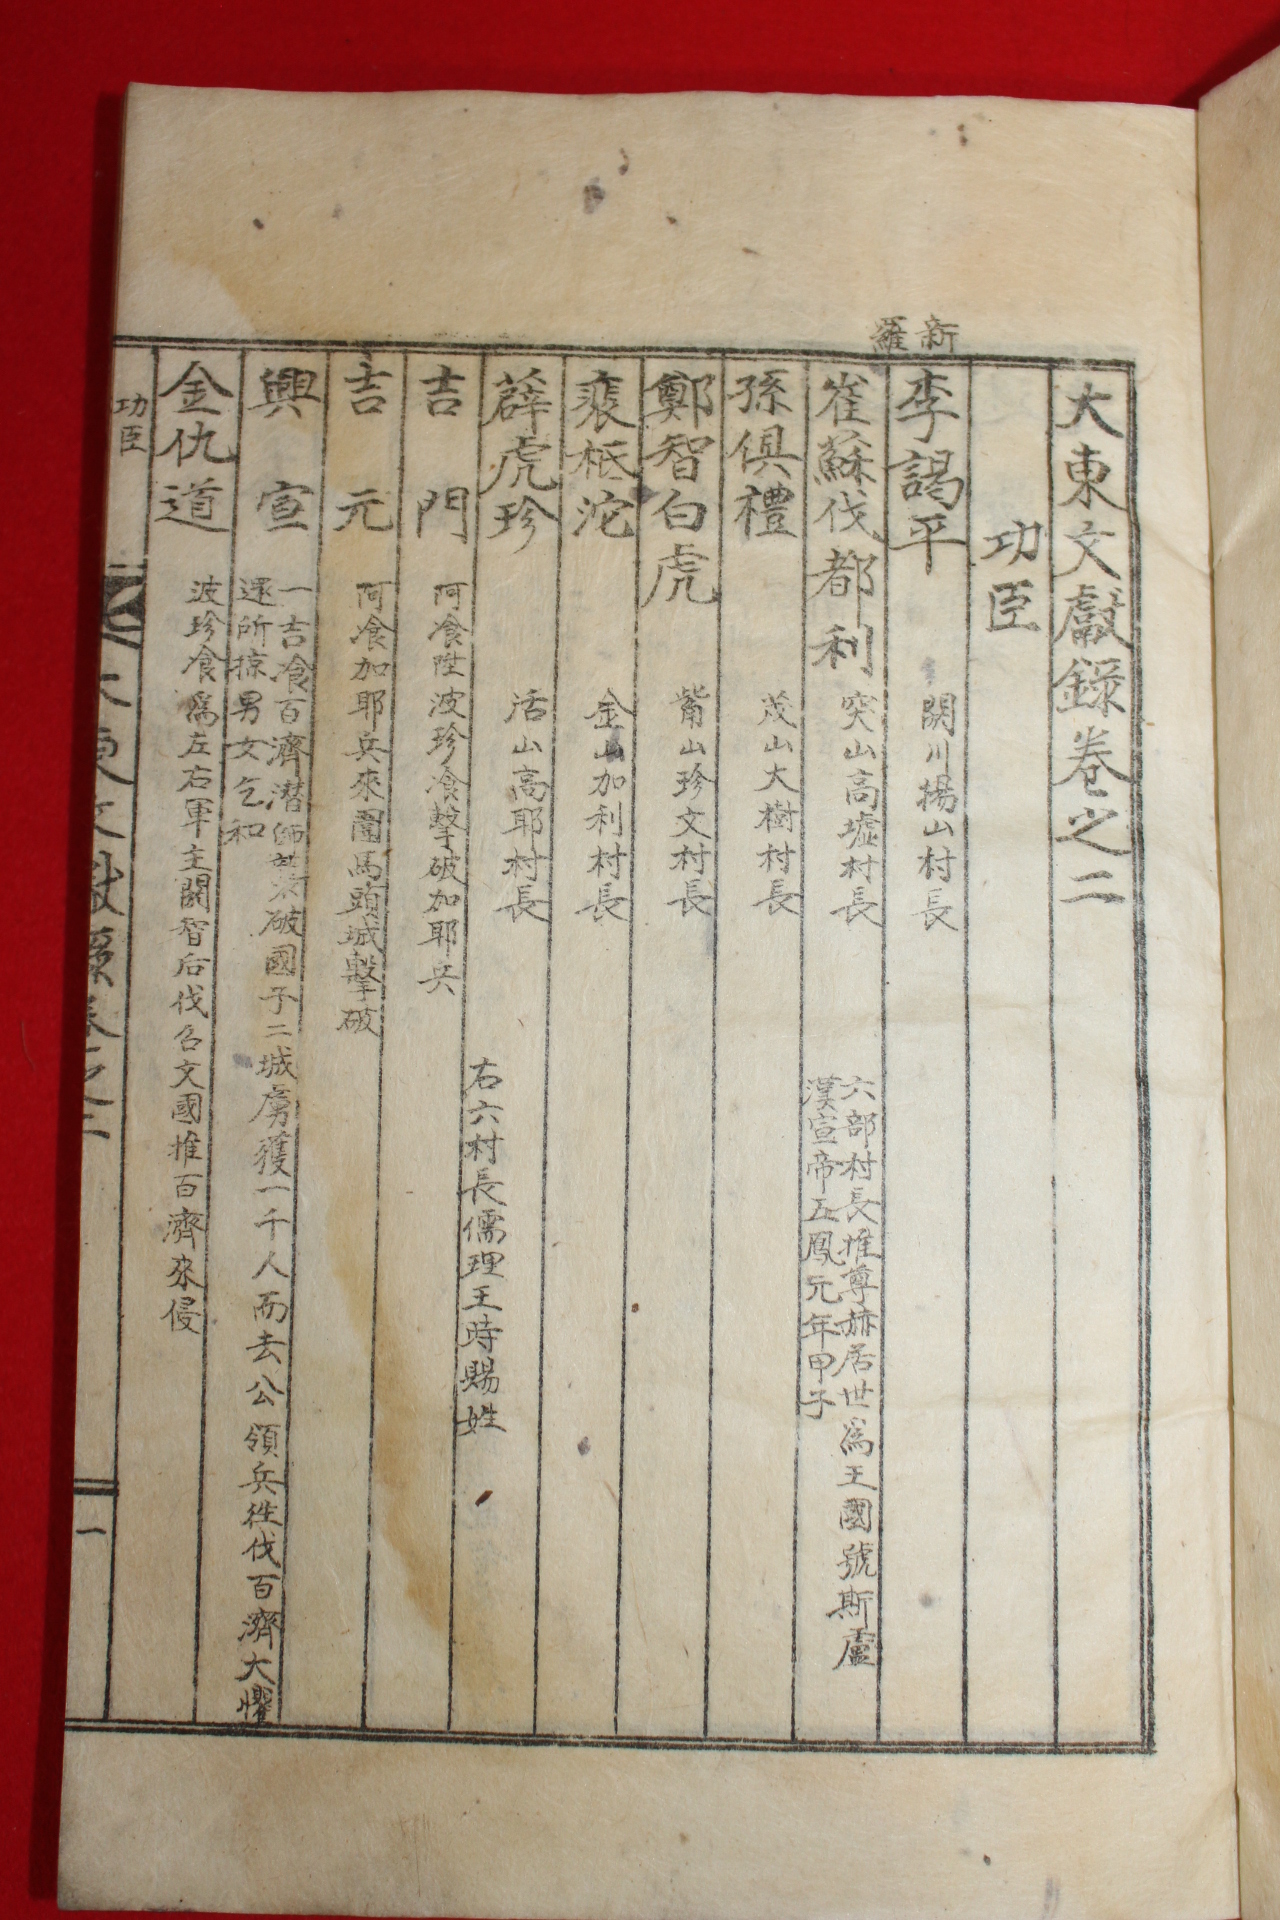 大東文獻錄卷之二
功臣
新羅
李謁平 閼川揚山村長
崔蘇伐都利 突山高墟村長 六部村長推尊赫居世爲王國號斯盧
漢宣帝五鳳元年甲子
孫俱禮 茂山大樹村長
鄭智白虎 觜山珍文村長
裵柢沱 金山加利村長
薛虎珍 活山高耶村長
右六村長儒理王時賜姓
吉門 阿飡陞波珍飡擊破加耶兵
吉元 阿飡加耶兵來圍馬頭城擊破
興宣 一吉飡百濟潜師 破國子二城虜獲一千人而去公領兵徃伐百濟大懼
還所掠男女乞和
金仇道 波珍飡爲左右軍主閼智后伐召文國推百濟來侵
功臣
大東文獻錄卷之二
一